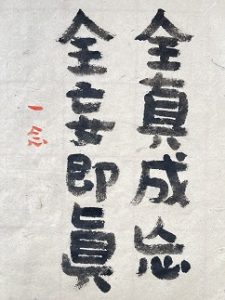 全真成
全妄即眞
一念